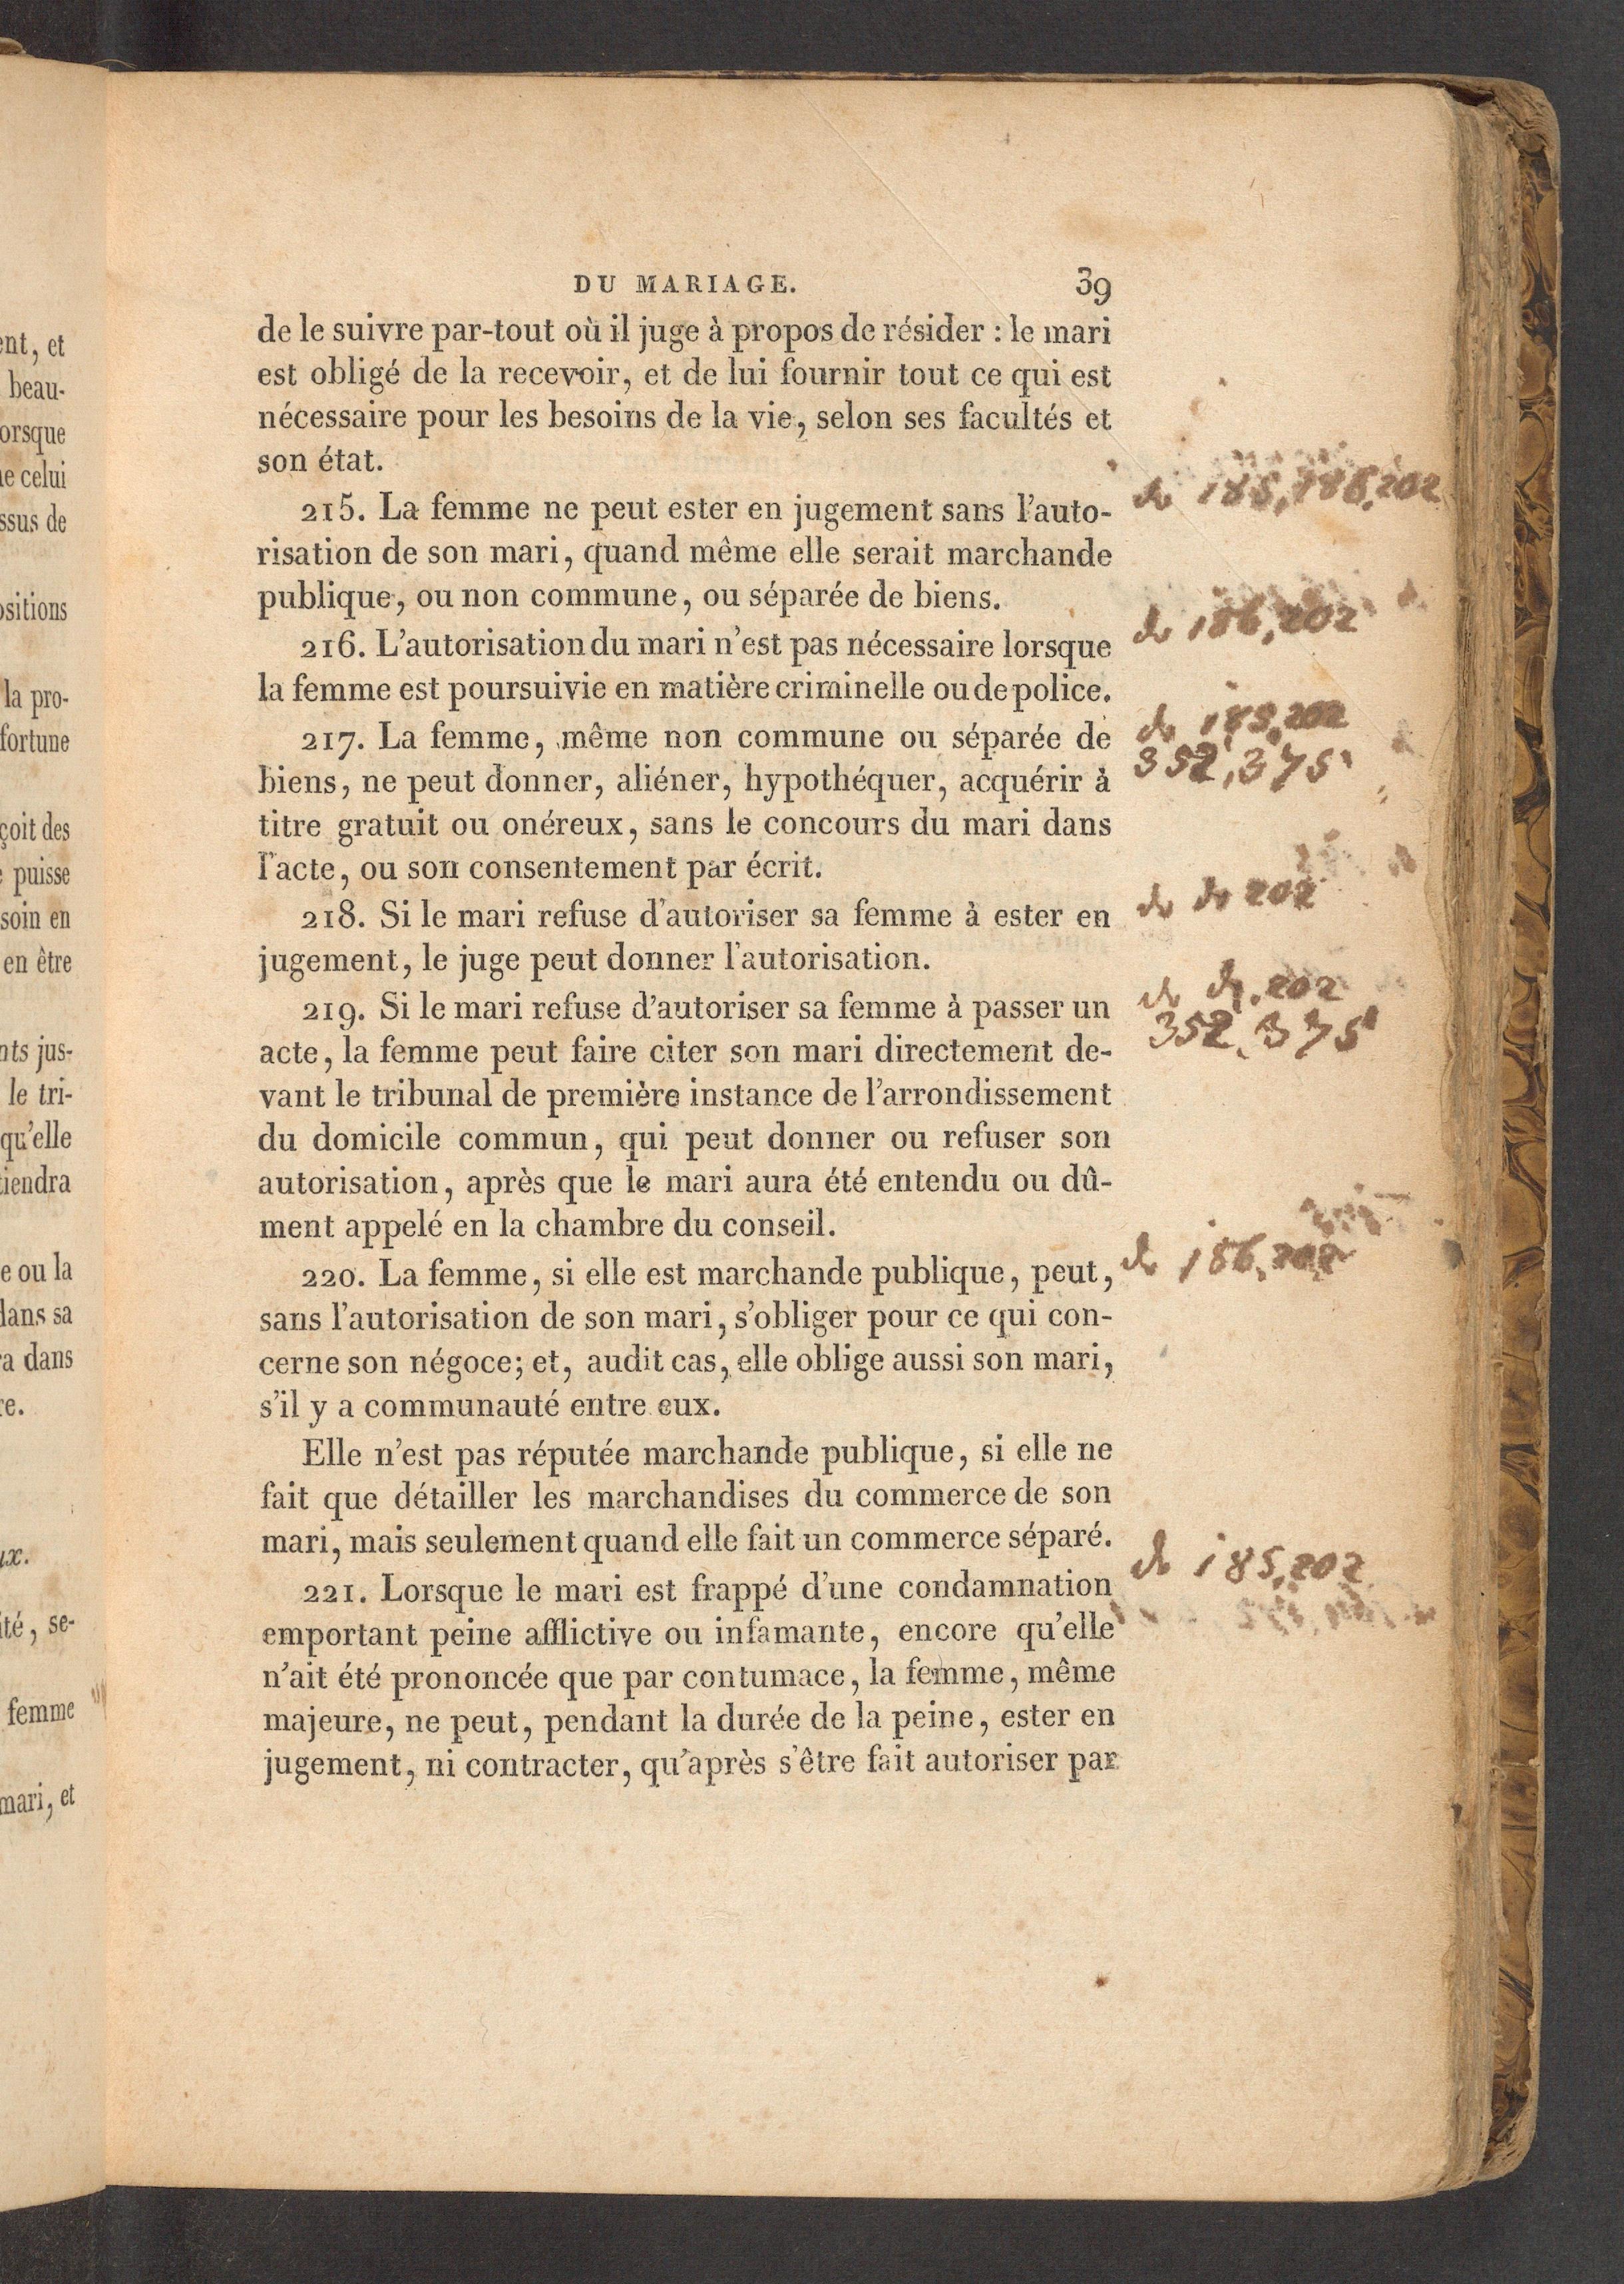 DU MARIAGE. 39
de le suivre par-tout où il juge à propos de résider : le mari
est obligé de la recevoir, et de lui fournir tout ce qui est
nécessaire pour les besoins de la vie, selon ses facultés et
son état.
215. La femme ne peut ester en jugement sans l'auto-
risation de son mari, quand même elle serait marchande
publique, ou non commune, ou séparée de biens.
216. L'autorisation du mari n'est pas nécessaire lorsque
la femme est poursuivie en matière criminelle ou de police.
217. La femme, même non commune ou séparée de
biens, ne peut donner, aliéner, hypothéquer, acquérir à
titre gratuit ou onéreux, sans le concours du mari dans
l'acte, ou son consentement par écrit.
218. Si le mari refuse d'autoriser sa femme à ester en
jugement, le juge peut donner l'autorisation.
219. Si le mari refuse d'autoriser sa femme à passer un
acte, la femme peut faire citer son mari directement de-
vant le tribunal de première instance de l'arrondissement
du domicile commun, qui peut donner ou refuser son
autorisation, après que le mari aura été entendu ou dû-
ment appelé en la chambre du conseil.
220. La femme, si elle est marchande publique, peut,
sans l'autorisation de son mari, s'obliger pour ce qui con-
cerne son négoce; et, audit cas, elle oblige aussi son mari,
s'il y a communauté entre eux.
Elle n'est pas réputée marchande publique, si elle ne
fait que détailler les marchandises du commerce de son
mari, mais seulement quand elle fait un commerce séparé.
221. Lorsque le mari est frappé d'une condamnation
emportant peine afflictive ou infamante, encore qu'elle
n'ait été prononcée que par contumace, la femme, même
majeure, ne peut, pendant la durée de la peine, ester en
jugement, ni contracter, qu'après s'être fait autoriser par
do 185, 186, 202
do 186, 202
do 185, 202
352, 375
do do 202
do do, 202
352, 375
do 186, 202
do 185, 202
ent, et
beau-
orsque
e celui
ssus de
ositions
la pro-
fortune
çoit des
puisse
soin en
en être
nts jus-
le tri-
qu'elle
tiendra
e ou la
dans sa
ra dans
re.
ux.
ité, se-
femme
mari, et